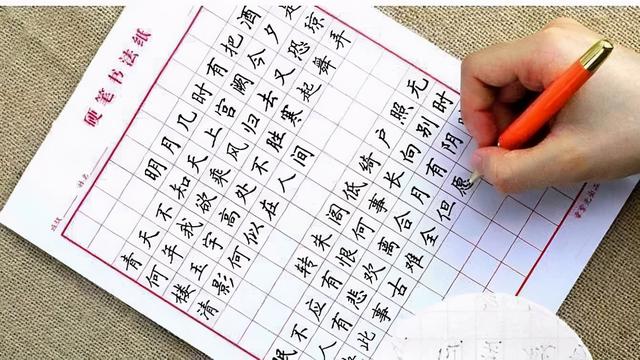 硬笔书法纸
班级
姓名
明月几时有把酒
青天不知天上宫阙今夕是
何年我欲乘风归去又恐琼
楼玉宇高处不胜寒起舞弄
清影何似在人间
转朱阁低绮户照无
眠不应有恨何事长向别时
人有悲欢离合月有阴
此事古难全但愿